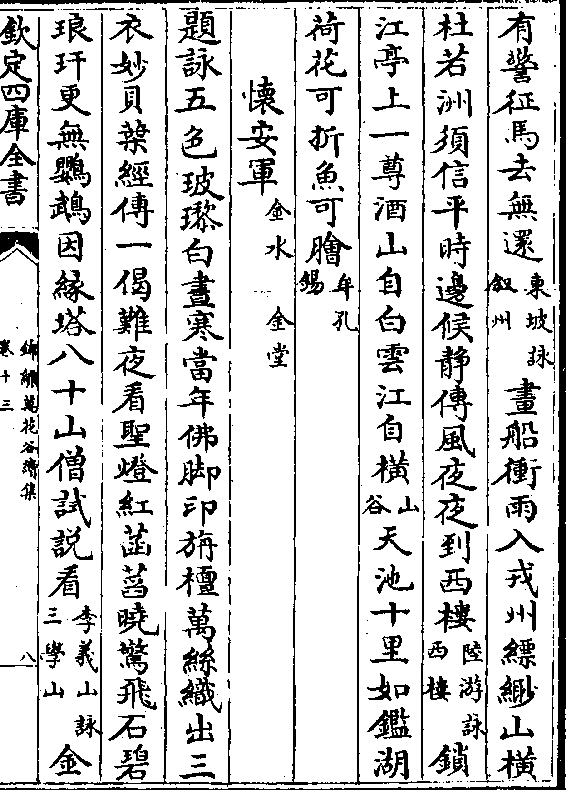 有警征馬去無還東坡詠叙州畫船衝雨入戎州縹緲山橫
杜若洲須信平時邊候静傳風夜夜到西樓陸游詠西樓鎖
江亭上一尊酒山自白雲江自橫山谷天池十里如鑑湖
荷花可折魚可膾牟孔錫
懷安軍金水金堂
題詠五色玻瓈白晝寒當年佛脚印旃檀萬絲織出三
衣妙貝葉經傳一偈難夜看聖燈紅菡萏曉驚飛石碧
琅玕更無鸚鵡因緣塔八十山僧試説看李義山詠三學山金
欽定四庫全書
錦繡萬花谷續集
卷十三
八